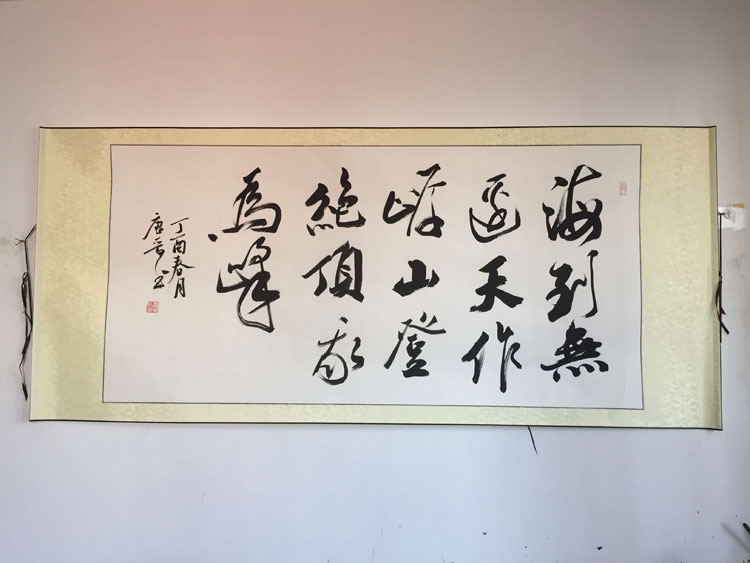 海到無
邊天作
岸山登
絕頂我
為峰
丁酉春月
唐晋书